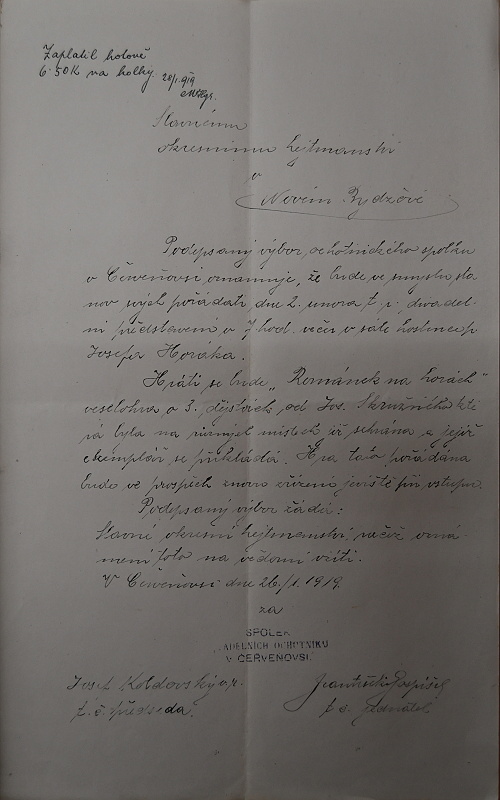 Zaplatil hotově
6·50K na kolky 28/1 919
Slavnému
okresnímu hejtmanství
v
Novém Bydžově
Podepsaný výbor, ochotnického spolku
v Červeňovsi oznamuje, že bude ve smyslu sta
nov svých pořádati dne 2. února t. r. divadel-
ní představení v 7 hod. večer v sále hostince p.
Josefa Horáka.
Hráti se bude „Románek na horách"
veselohra o 3. dějstvích od Jos. Skružného kte
rá byla na různých místech již sehrána a jejíž
exemplář se přikládá. Hra tato pořádána
bude ve prospěch znovu zřízení jeviště při vstupu.
Podepsaný výbor žádá:
Slavné okresní hejtmanství, račiž ozná-
mení toto na vědomí vzíti.
V Červeňovsi dne 26/1. 1919.
za
SPOLEK
DADELNÍCH OCHOTNÍKŮ
V ČERVEŇOVSI.
Josef Koldovský v.r. František Pospíšil
t. č. předseda. t. č. jednatel.